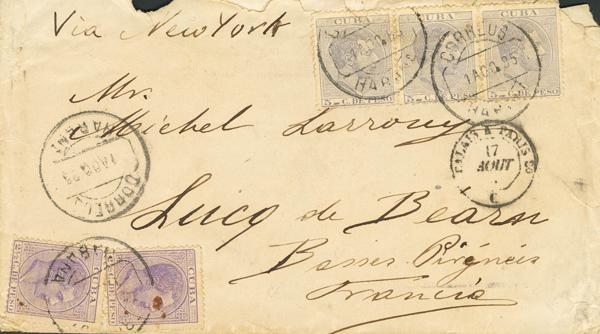 Via New York
CUBA CUBA CUBA
5 C. DE PESO 5 C. DE PESO 5 C. DE PESO
CORREOS
1 AGO. 85
HABANA
Mr.
Michel Larrouy
CORREOS
1 AGO. 85
HABANA
CALAIS A PARIS
17
AOUT
Lucq de Béarn
Basses Pirgnéis
Francia
CUBA CUBA
HABANA